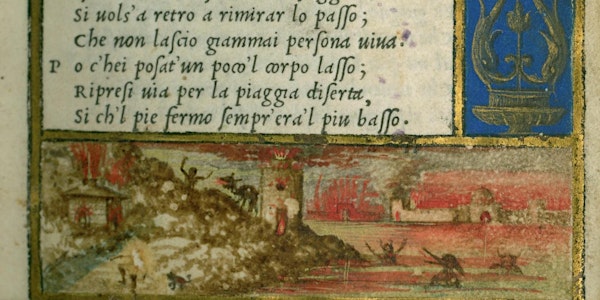 Si uols'a retro a rimirar lo passo;
Che non lascio giammai persona uiua.
P o c'hei posat'un poco'l corpo lasso;
Ripresi uia per la piaggia diserta,
Si ch'l pie fermo sempr'era'l piu basso.